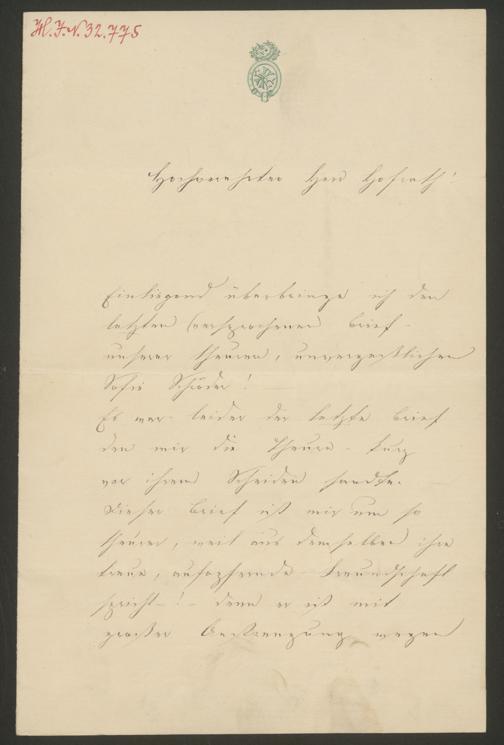 H.I.N. 32.775
Hochverehrter Herr Hofrath!
Einliegend überbringe ich den
letzten (versprochenen) Brief
unserer theuren, unvergeßlichen
Sofie Schröder!
Es war leider der letzte Brief
den mir die Theure kurz
vor ihrem Scheiden sandte.
Dieser Brief ist mir um so
theurer, weil aus demselben ihre
treue, aufopfernde Freundschaft
spricht! denn er ist mit
großer Anstrengung wegen